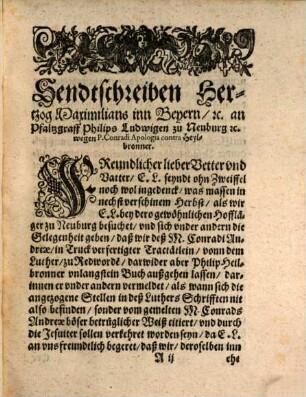 Sendtschreiben Her-
tzog Maximilians inn Beyern/ ꝛc. an
Pfaltzgraff Philips Ludwigen zu Neuburg ꝛc.
wegen P. Conradi Apologia contra Heyl-
bronner.
FReundlicher lieber Vetter vnd
Vatter/ E. L. seyndt ohn Zweiffel
noch wol ingedenck/ was massen in
nechst verschinem Herbst/ als wir
E. L. bey dero gewöhnlichen Hoffläg
ger zu Neuburg besuchet/ vnd sich vnder andern die
Gelegenheit geben/ daß wir deß M. Conradi An-
dreæ/ in Truck verfertigter Tractätlein/ vonn dem
Luther/ zu Redwordē/ darwider aber Philip Heil-
bronner vnlangst ein Buch außgehen lassen/ dar-
innen er vnder andern vermeldet/ als wann sich die
angezogene Stellen in deß Luthers Schrifften nit
also befinden/ sonder vom gemelten M. Conrads
Andreæ böser betrüglicher Weiß citiert/ vnd durch
die Jesuiter sollen verkehret worden seyn/ da E. L.
an vns freundtlich begeret/ daß wir/ deroselben inn
A ij
ehe